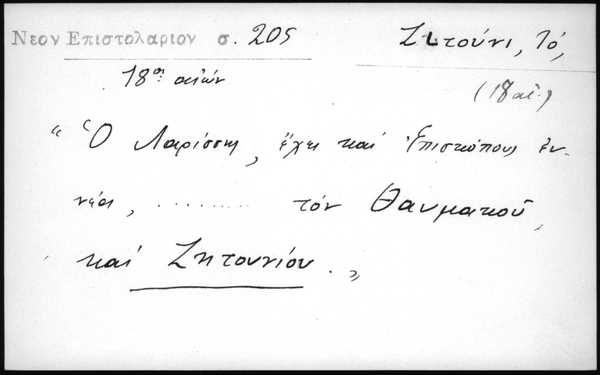 Νεον Επιστολαριον σ. 205
Ζιτούνι, Τό,
18ος αιών
(18 αἰ.)
“Ὁ Λαρίσσης, ἔχει καί Ἐπισκόπους ἐν-
νέα, ......... τόν Θαυμακοῦ,
καί Ζητουνίου.„